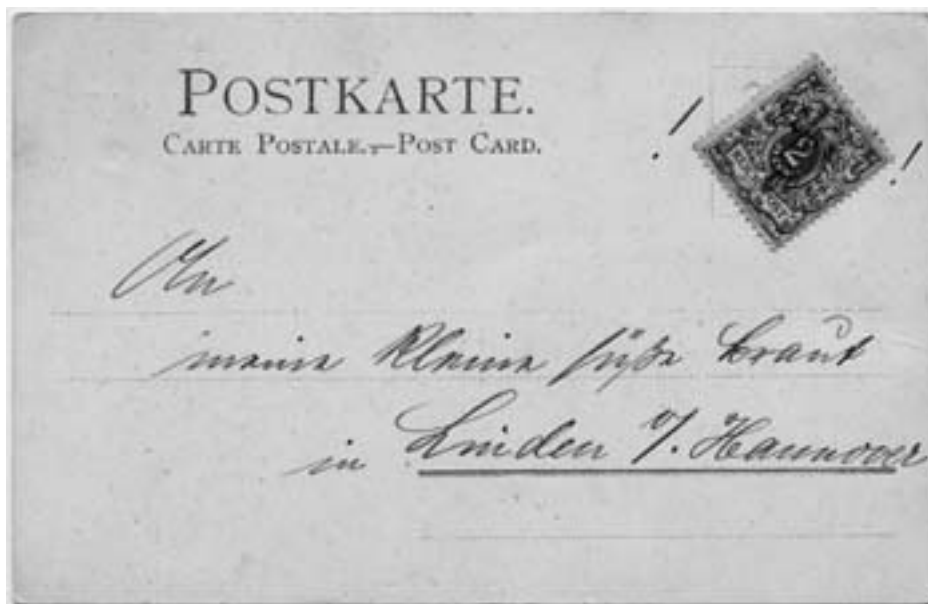 POSTKARTE.
CARTE POSTALE.—POST CARD.
! 2 !
An
meine kleine süße Braut
in Linden v/. Hannover